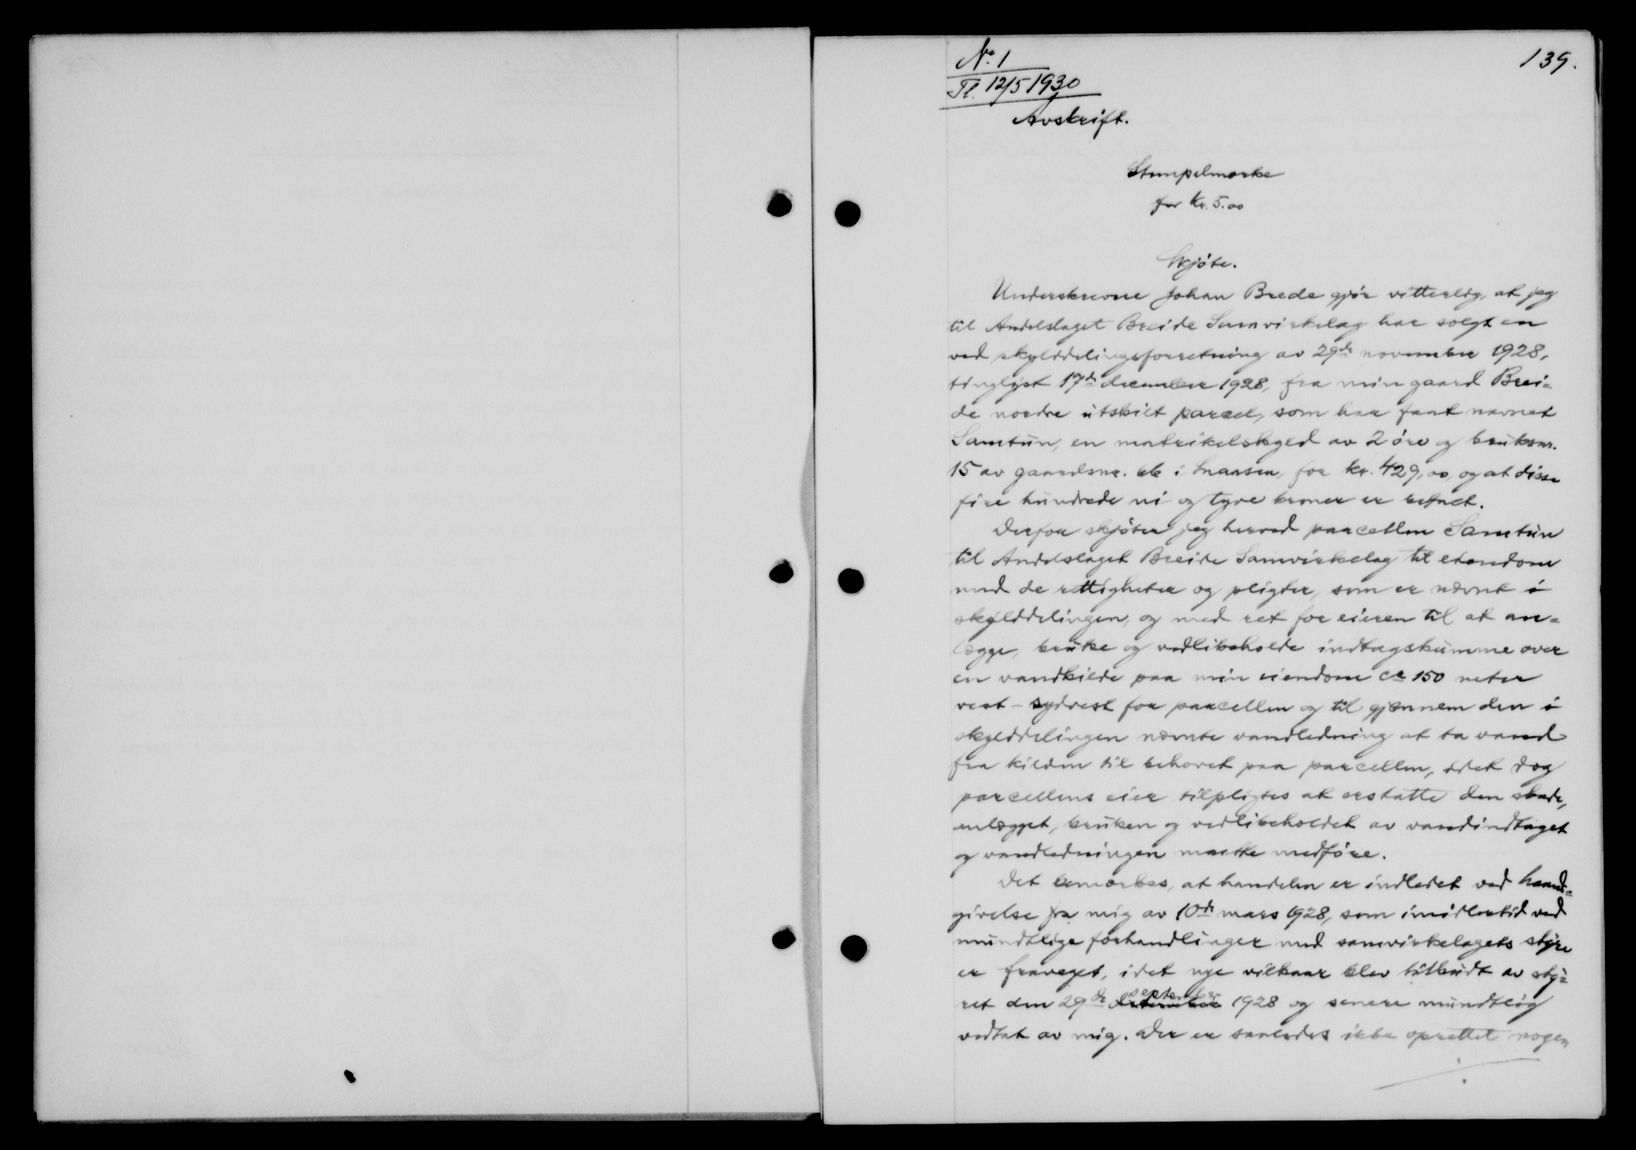 139.
No. 1
Tl. 12/5 1930
Avskrift.
Stempelmerke
for kr. 5.00
Skjöte.
Underskrevne Johan Brede gjör vitterlig, at jeg
til Andelslaget Breide Samvirkelag har solgt en
ved skylddelingsforretning av 29de november 1928,
tinglyst 17de december 1928, fra min gaard Brei-
de nordre utskilt parcel, som har faat navnet
Samtun, en matrikelskyld av 2 öre og bruksnr.
15 av gaardsnr. 66 i Snaasen, for kr. 429,00, og at disse
fire hundrede ni og tyve kroner er betalt.
Derfor skjöter jeg herved parcellen Samtun
til Andelslaget Breide Samvirkelag til eiendom
med de rettigheter og pligter, som er nævnt i
skylddelingen, og med ret for eieren til at an-
lægge, bruke og vedlikeholde indtagskumme over
en vandkilde paa min eiendom ca 150 meter
vest-sydvest for parcellen og til gjennem den i
skylddelingen nævnte vandledning at ta vand
fra kilden til behovet paa parcellen, idet dog
parcellens eier tilpligtes at erstatte den skade,
anlægget, bruken og vedlikeholdet av vandindtaget
og vandledningen maatte medföre.
Det bemerkes, at handelen er indledet ved haand-
givelse fra mig av 10de mars 1928, som imidlertid ved
mundtlige forhandlinger med samvirkelagets styre
er fraveget, idet nye vilkaar blev tilbudt av sty-
ret den 29de september 1928 og senere mundtlig
vedtat av mig. Der er saaledes ikke oprettet nogen